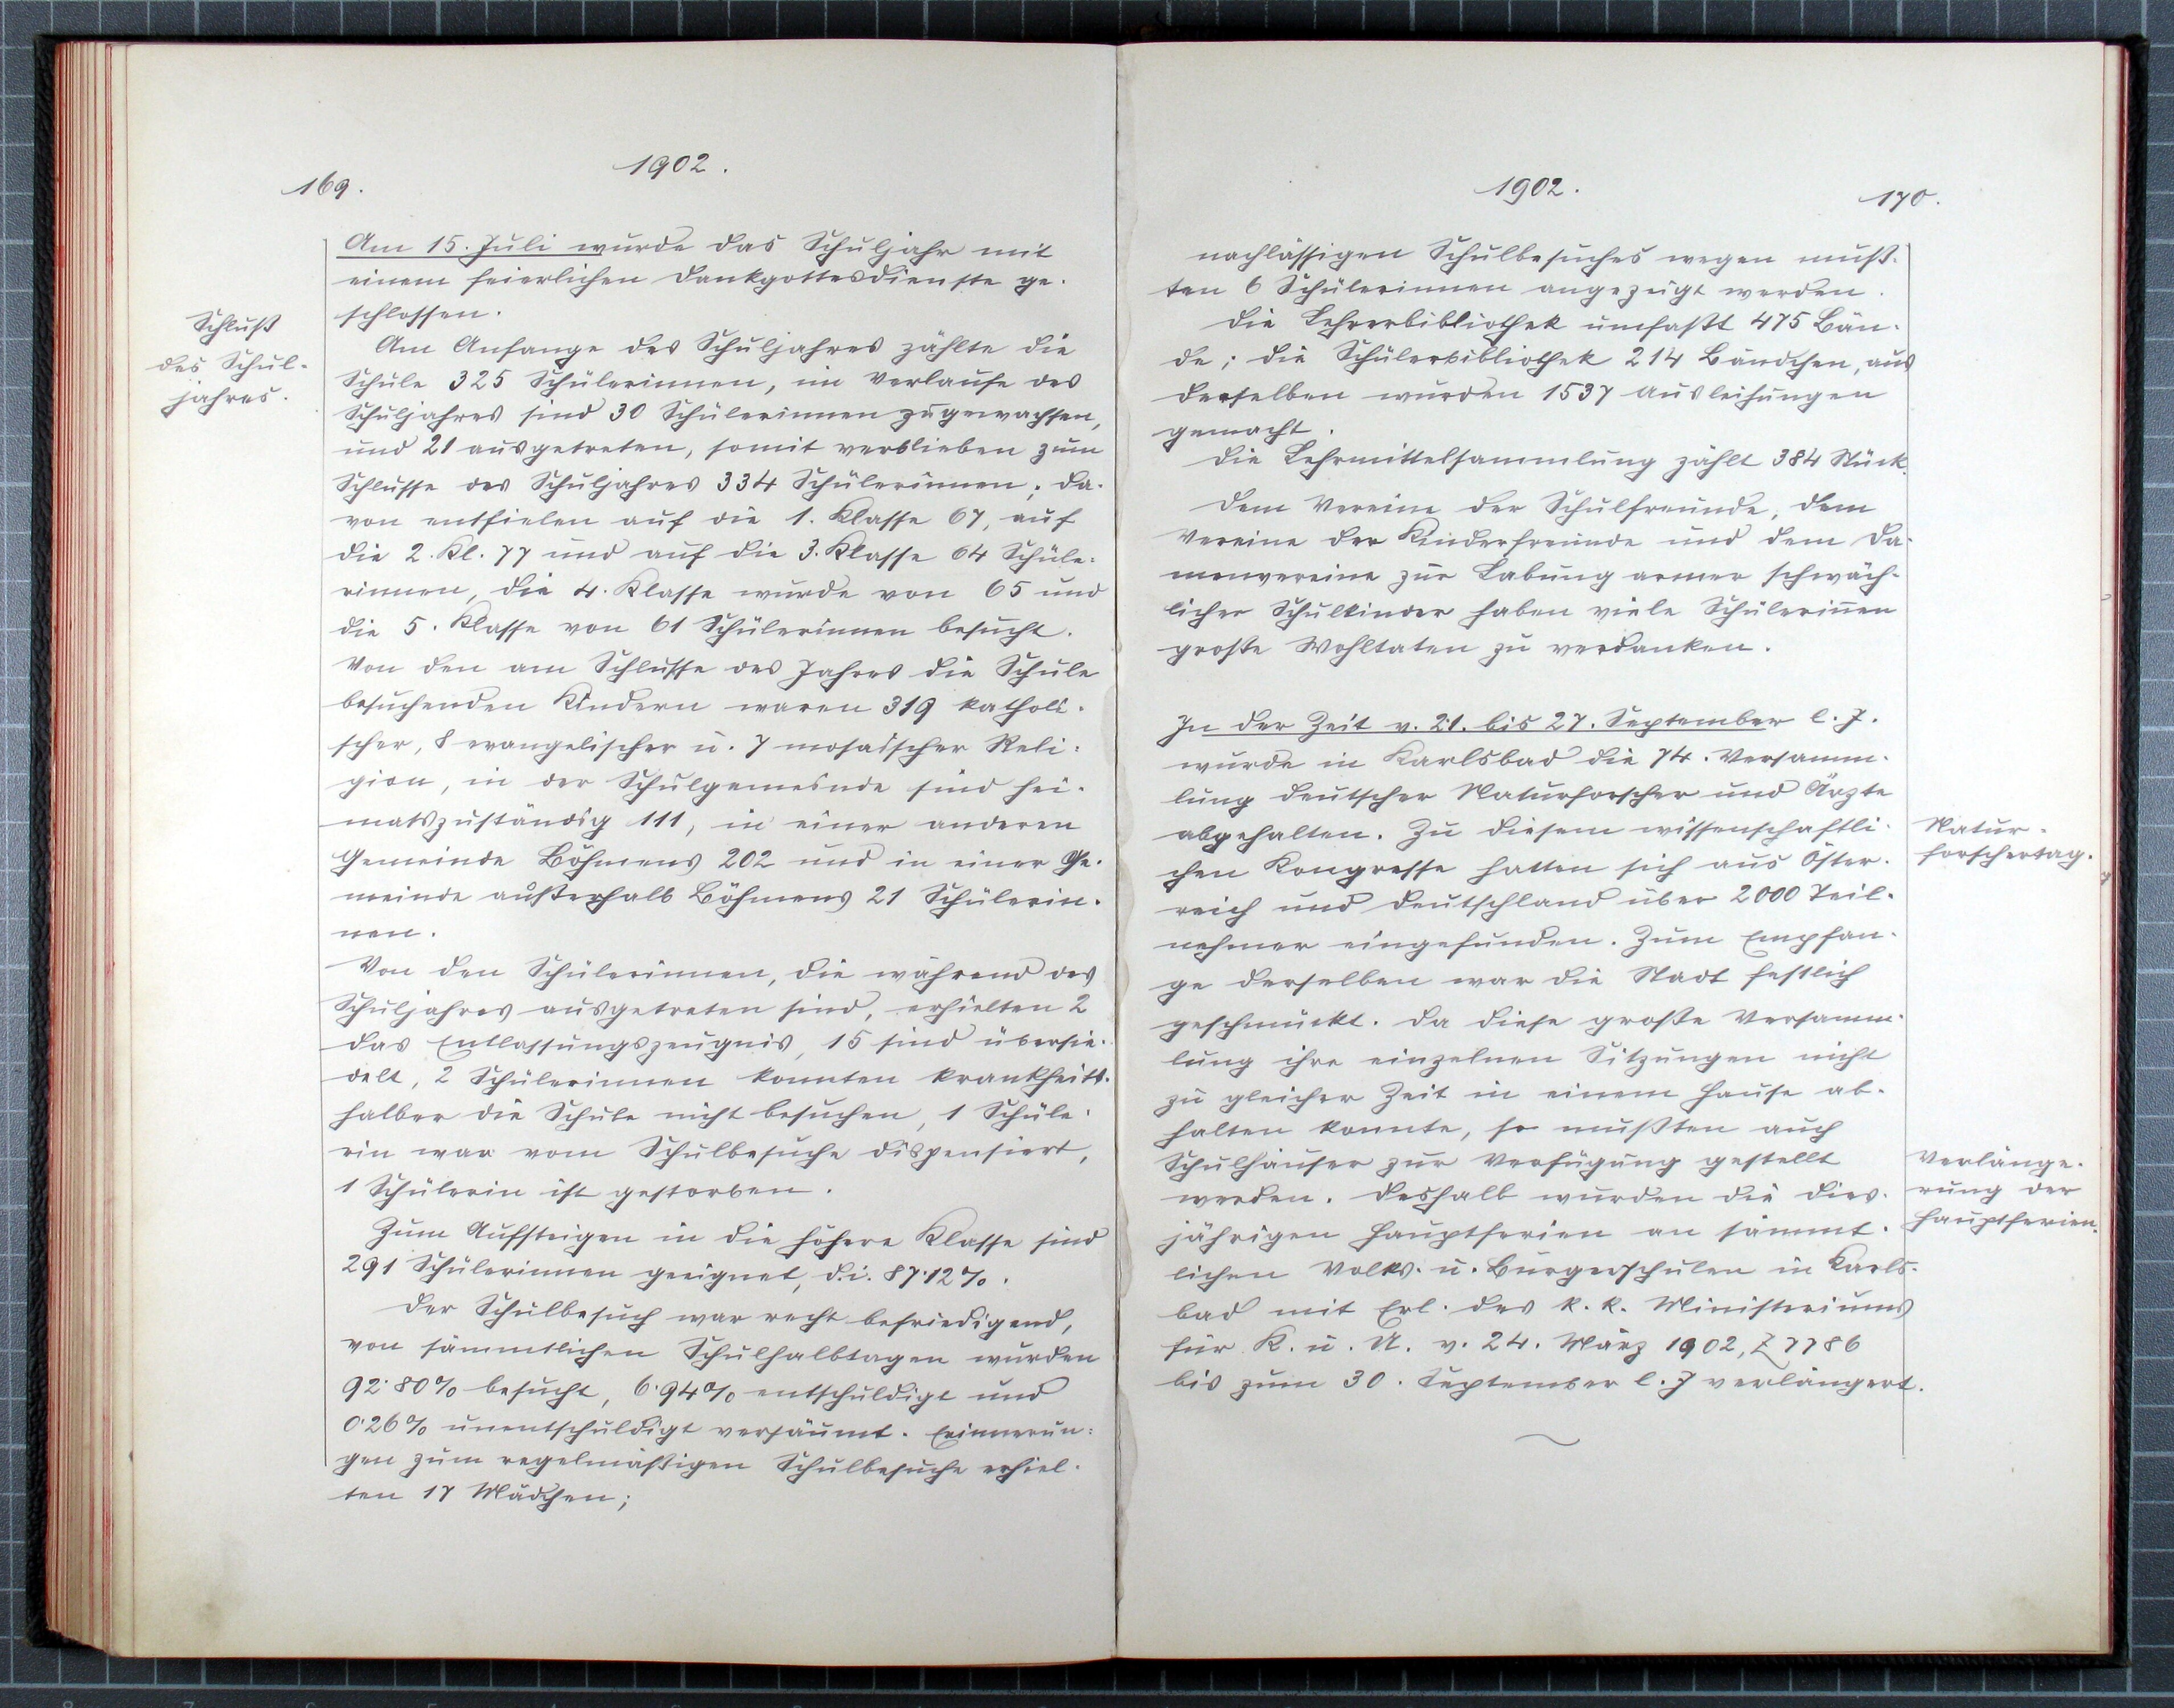 169.
1902.
Schluß
des Schul-
jahres.
Am 15. Juli wurde das Schuljahr mit
einem feierlichen Dankgottesdienste ge-
schlossen.
Am Anfange des Schuljahres zählte die
Schule 325 Schülerinnen, im Verlaufe des
Schuljahres sind 30 Schülerinnen zugewachsen,
und 21 ausgetreten, somit verblieben zum
Schlusse des Schuljahres 334 Schülerinnen; da-
von entfielen auf die 1. Klasse 67, auf
die 2. Kl. 77 und auf die 3. Klasse 64 Schüle-
rinnen, die 4. Klasse wurde von 65 und
die 5. Klasse von 61 Schülerinnen besucht.
Von den am Schlusse des Jahres die Schule
besuchenden Kindern waren 319 katholi-
scher, 8 evangelischer u. 7 mosaischer Reli-
gion, in der Schulgemeinde sind hei-
matszuständig 111, in einer anderen
Gemeinde Böhmens 202 und in einer Ge-
meinde außerhalb Böhmens 21 Schülerin-
nen.
Von den Schülerinnen, die während des
Schuljahres ausgetreten sind, erhielten 2
das Entlassungszeugnis, 15 sind übersie-
delt, 2 Schülerinnen konnten krankheits-
halber die Schule nicht besuchen, 1 Schüle-
rin war vom Schulbesuche dispensiert,
1 Schülerin ist gestorben.
Zum Aufsteigen in die höhere Klasse sind
291 Schülerinnen geeignet, d.i. 87·12%.
Der Schulbesuch war recht befriedigend,
von sämmtlichen Schulhalbtagen wurden
92·80% besucht, 6·94% entschuldigt und
0·26% unentschuldigt versäumt. Erinnerun-
gen zum regelmäßigen Schulbesuche erhiel-
ten 17 Mädchen;
1902.
170.
nachlässigen Schulbesuches wegen muß-
ten 6 Schülerinnen angezeigt werden.
Die Lehrerbibliothek umfaßt 475 Bän-
de; die Schülerbibliothek 214 Bändchen, aus
derselben wurden 1537 Ausleihungen
gemacht.
Die Lehrmittelsammlung zählt 384 Stück.
Dem Vereine der Schulfreunde, dem
Vereine der Kinderfreunde und dem Da-
menvereine zur Labung armer schwäch-
licher Schulkinder haben viele Schülerin̄en
große Wohltaten zu verdanken.
In der Zeit v. 21. bis 27. September l. J.
wurde in Karlsbad die 74. Versamm-
lung deutscher Naturforscher und Ärzte
abgehalten. Zu diesem wissenschaftli-
chen Kongresse hatten sich aus Öster-
reich und Deutschland über 2000 Teil-
nehmer eingefunden. Zum Empfan-
ge derselben war die Stadt festlich
geschmückt. Da diese große Versamm-
lung ihre einzelnen Sitzungen nicht
zu gleicher Zeit in einem Hause ab-
halten konnte, so mußten auch
Schulhäuser zur Verfügung gestellt
werden. Deshalb wurden die dies-
jährigen Hauptferien an sämmt-
lichen Volks- u. Bürgerschulen in Karls-
bad mit Erl. des k. k. Ministeriums
für K. u. U. v. 24. März 1902, Z 7786
bis zum 30. September l. J verlängert.
Natur-
forschertag.
Verlänge-
rung der
Hauptferien.